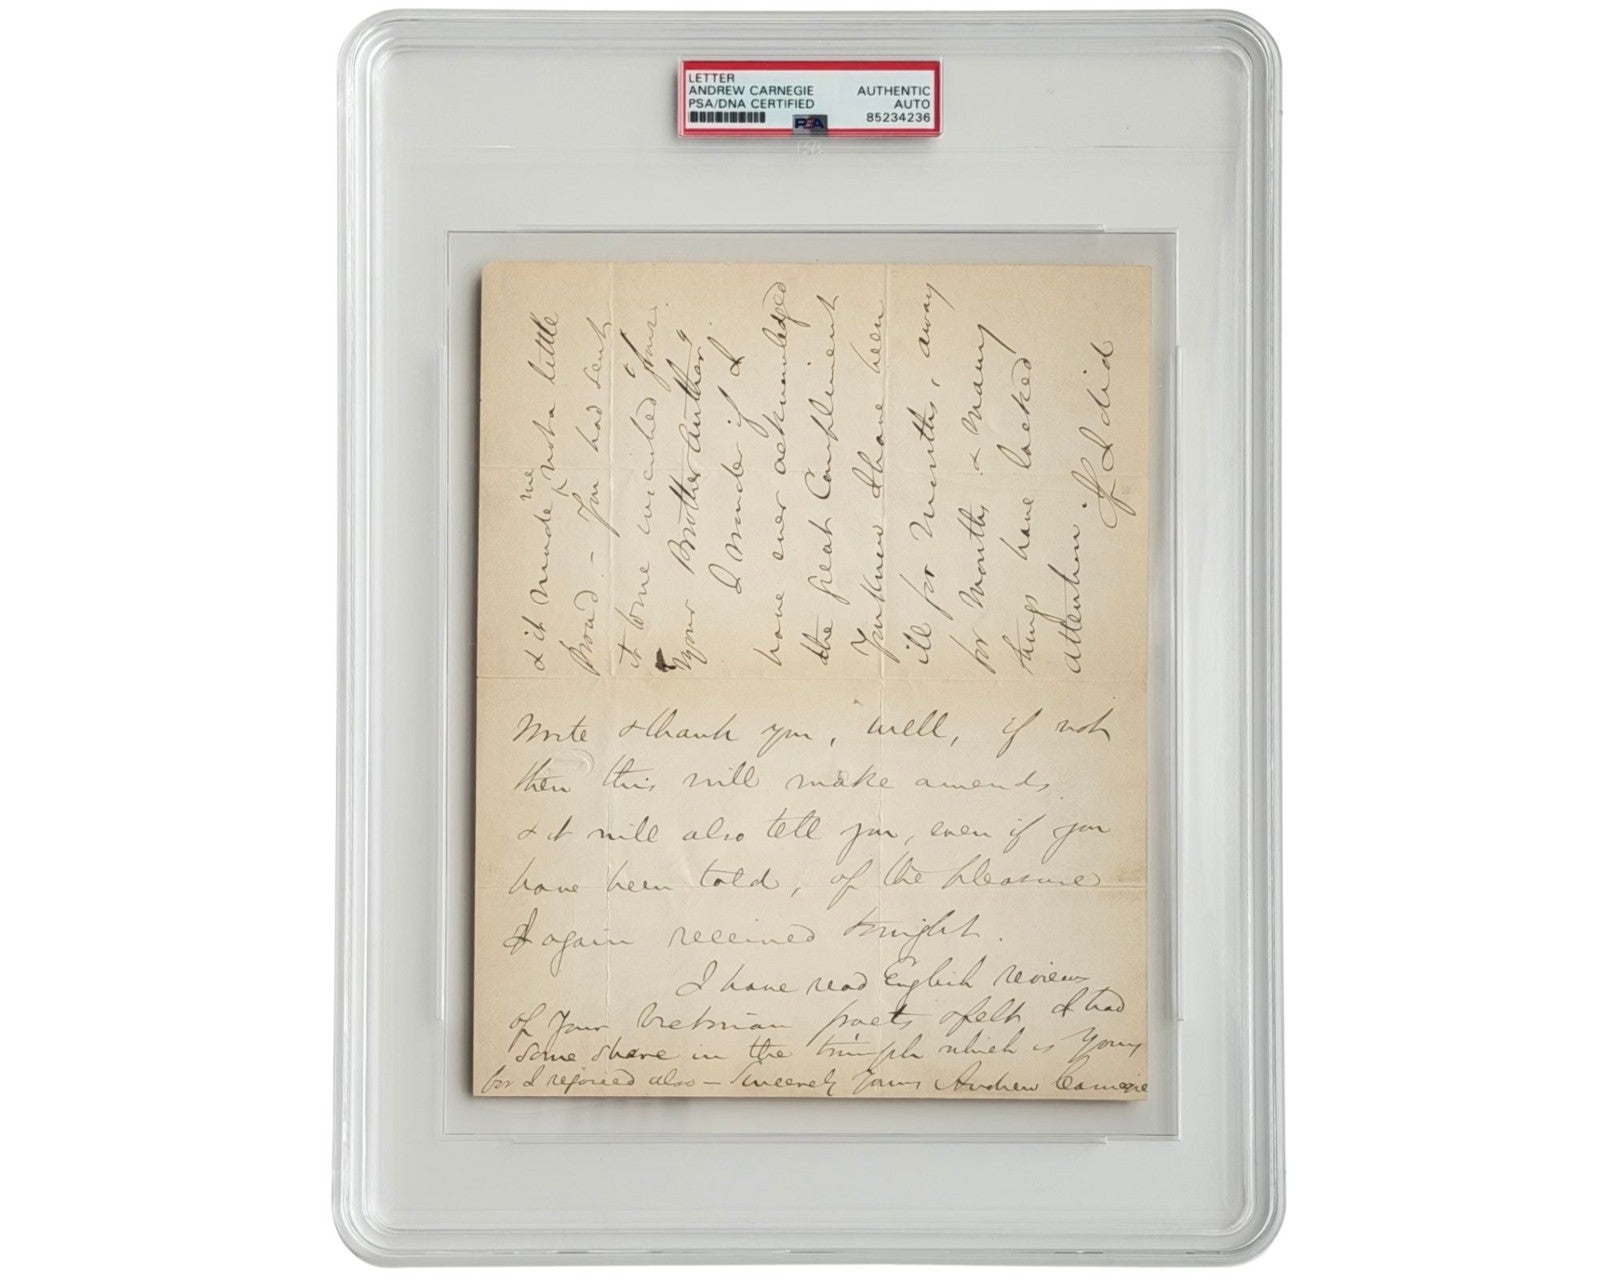 LETTER
ANDREW CARNEGIE
PSA/DNA CERTIFIED
AUTHENTIC
AUTO
85234236
PSA
& it made me not a little
Proud – You had sent
it to me enriched
your Brother Author"
I wonder if I
have ever acknowledged
the great Compliment
You know I have been
ill for Months, away
for Months & Many
things have lacked
attention. If I did
Write & thank you, well, if not
then this will make amends
& it will also tell you, even if you
have been told, of the pleasure
I again received tonight.
I have read English reviews
of Your Victorian poets & felt I had
Some share in the triumph which is Yours
for I rejoiced also – Sincerely Yours Andrew Carnegie